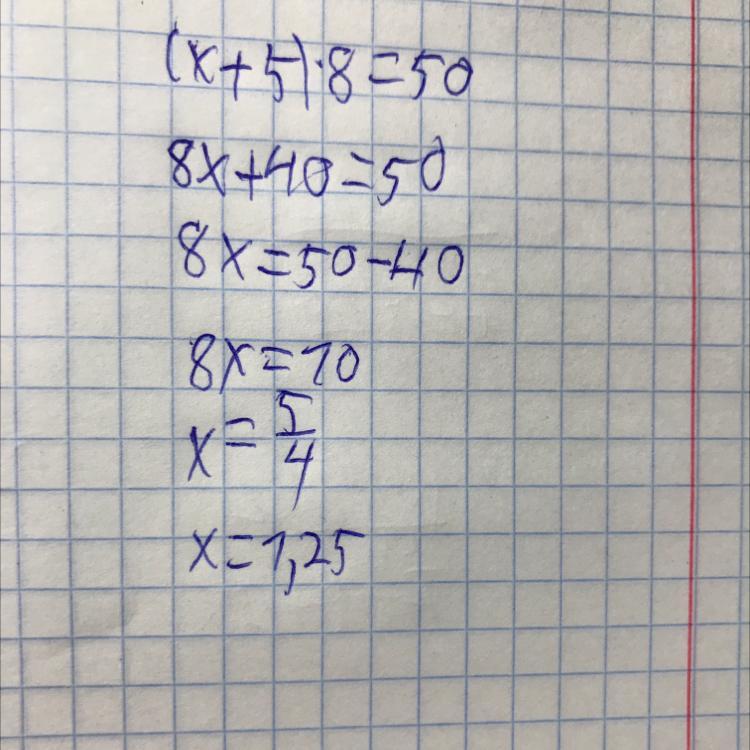 (x+5)·8=50
8x+40=50
8x=50-40
8x=10
x=5/4
x=1,25